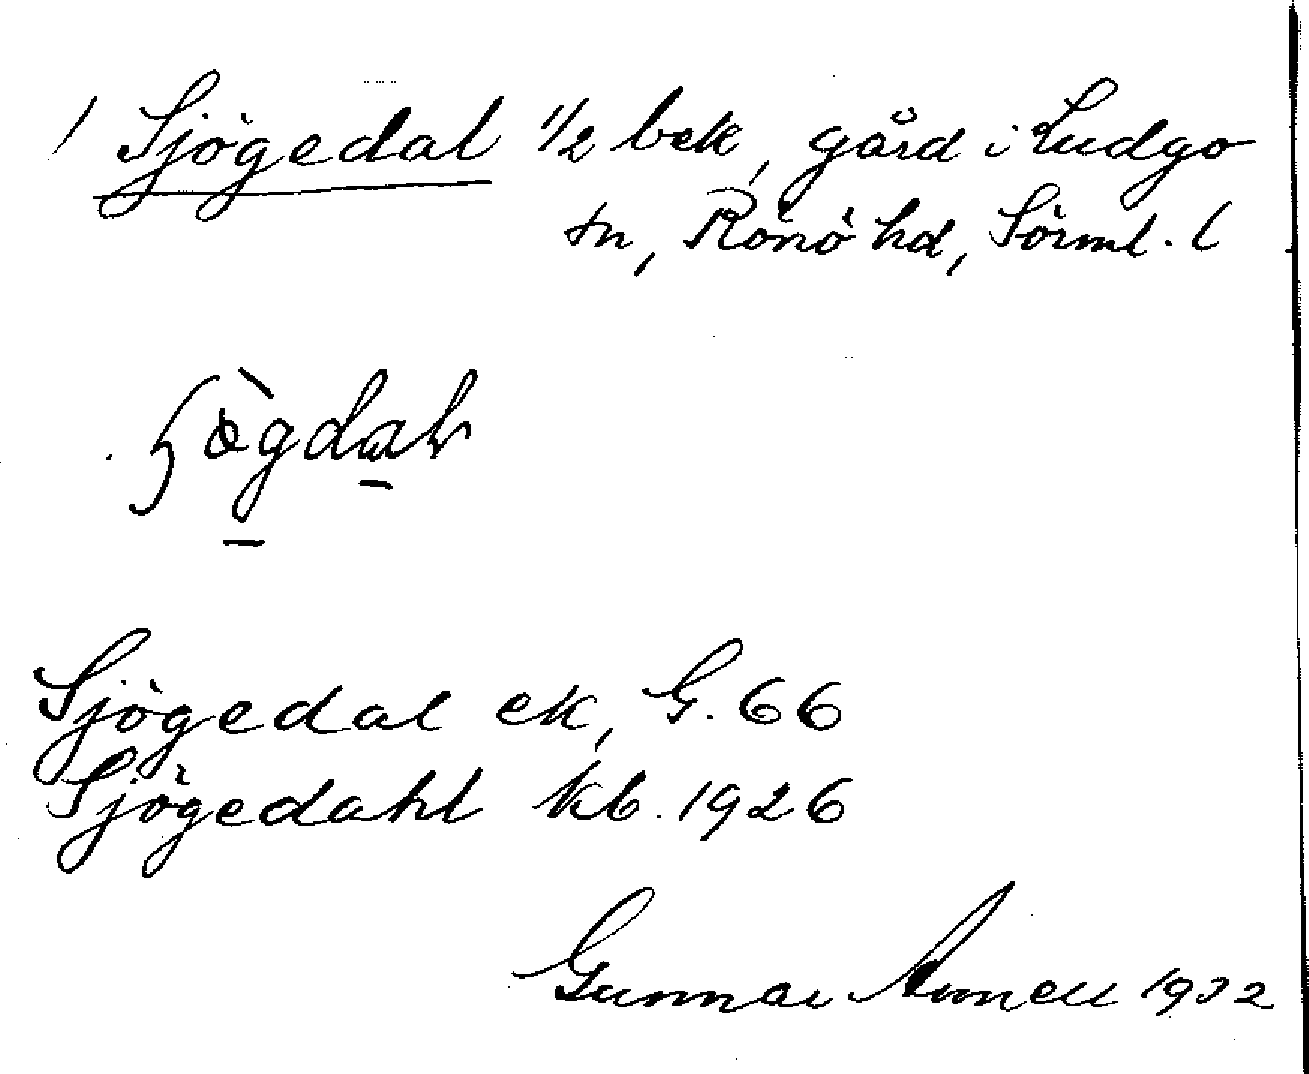 / Sjögedal 1/2 bek, gård i Ludgo
sn, Rönö hd, Sörml. l
Sjögedal ek, G. 66
Sjögedahl kb. 1926
Gunnar Arnell 1932